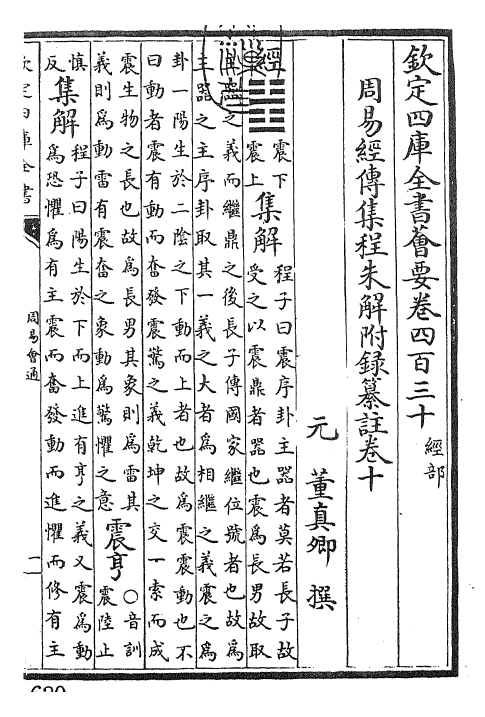 欽定四庫全書薈要卷四百三十 經部
周易經傳集程朱解附録纂註卷十
元 董真卿 撰
經䷲震下
震上
集解
程子曰震序卦主器者莫若長子故
受之以震鼎者器也震為長男故取
之義而繼鼎之後長子傳國家繼位號者也故為
主器之主序卦取其一義之大者為相繼之義震之為
卦一陽生於二陰之下動而上者也故為震震動也不
曰動者震有動而奮發震驚之義乾坤之交一索而成
震生物之長也故為長男其象則為雷其
義則為動雷有震奮之象動為驚懼之意
震亨
○音訓
震陸止
慎
反
集解
程子曰陽生於下而上進有亨之義又震為動
為恐懼為有主震而奮發動而進懼而修有主
欽定四庫全書
周易會通
一